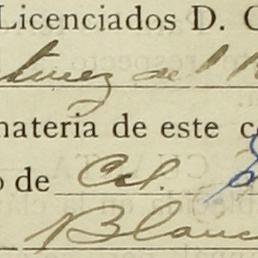 Licenciados D.
del
materia de este
o de Col.
Blanc